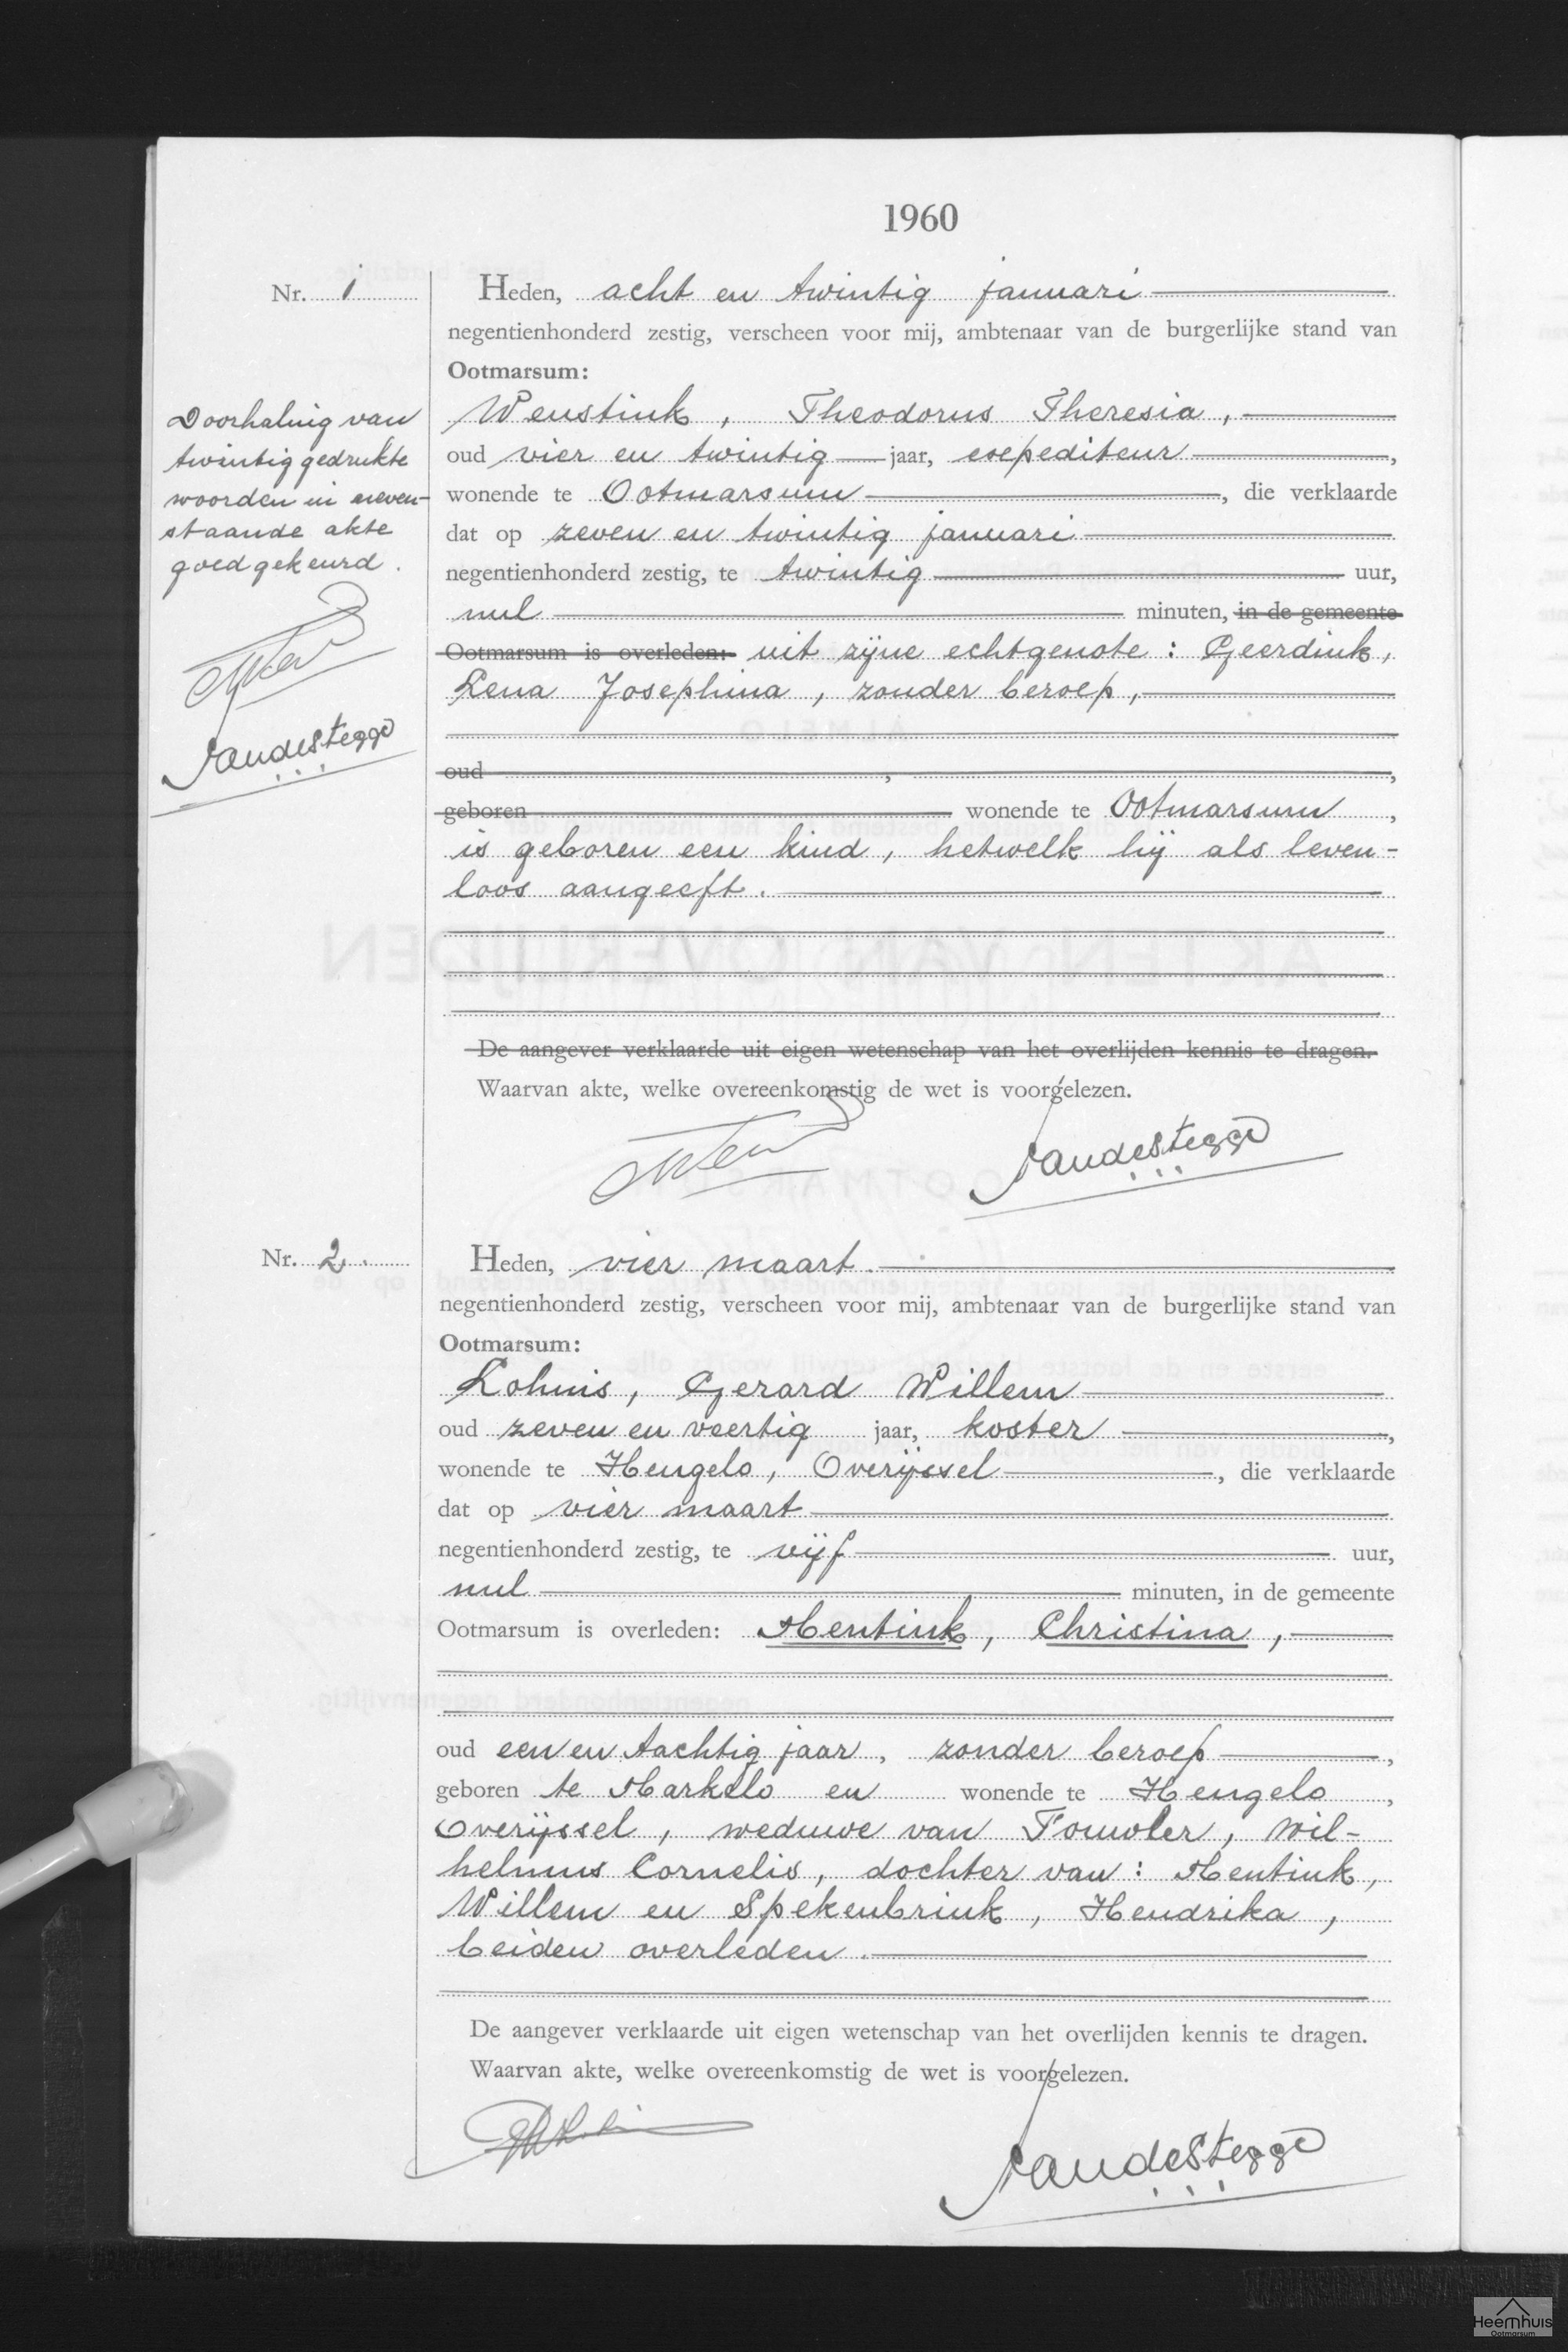 1960
Nr. 1
Heden, acht en twintig januari
negentienhonderd zestig, verscheen voor mij, ambtenaar van de burgerlijke stand van
Ootmarsum:
Wenstink, Theodorus Theresia,
oud vier en twintig jaar, expediteur,
wonende te Ootmarsum, die verklaarde
dat op zeven en twintig januari
negentienhonderd zestig, te twintig uur,
nul minuten, in de gemeente
Ootmarsum is overleden: uit zijne echtgenote: Geerdink,
Lena Josephina, zonder beroep,
oud , ,
geboren wonende te Ootmarsum,
is geboren een kind, hetwelk hij als leven-
loos aangeeft.
De aangever verklaarde uit eigen wetenschap van het overlijden kennis te dragen.
Waarvan akte, welke overeenkomstig de wet is voorgelezen.
Doorhaling van
twintig gedrukte
woorden in neven-
staande akte
goedgekeurd.
Nr. 2.
Heden, vier maart.
negentienhonderd zestig, verscheen voor mij, ambtenaar van de burgerlijke stand van
Ootmarsum:
Lohuis, Gerard Willem
oud zeven en veertig jaar, koster,
wonende te Hengelo, Overijssel, die verklaarde
dat op vier maart
negentienhonderd zestig, te vijf uur,
nul minuten, in de gemeente
Ootmarsum is overleden: Mentink, Christina,
oud een en tachtig jaar, zonder beroep,
geboren te Markelo en wonende te Hengelo,
Overijssel, weduwe van Fouwler, Wil-
helmus Cornelis, dochter van: Mentink,
Willem en Spekenbrink, Hendrika,
beiden overleden.
De aangever verklaarde uit eigen wetenschap van het overlijden kennis te dragen.
Waarvan akte, welke overeenkomstig de wet is voorgelezen.
Heemhuis
Ootmarsum